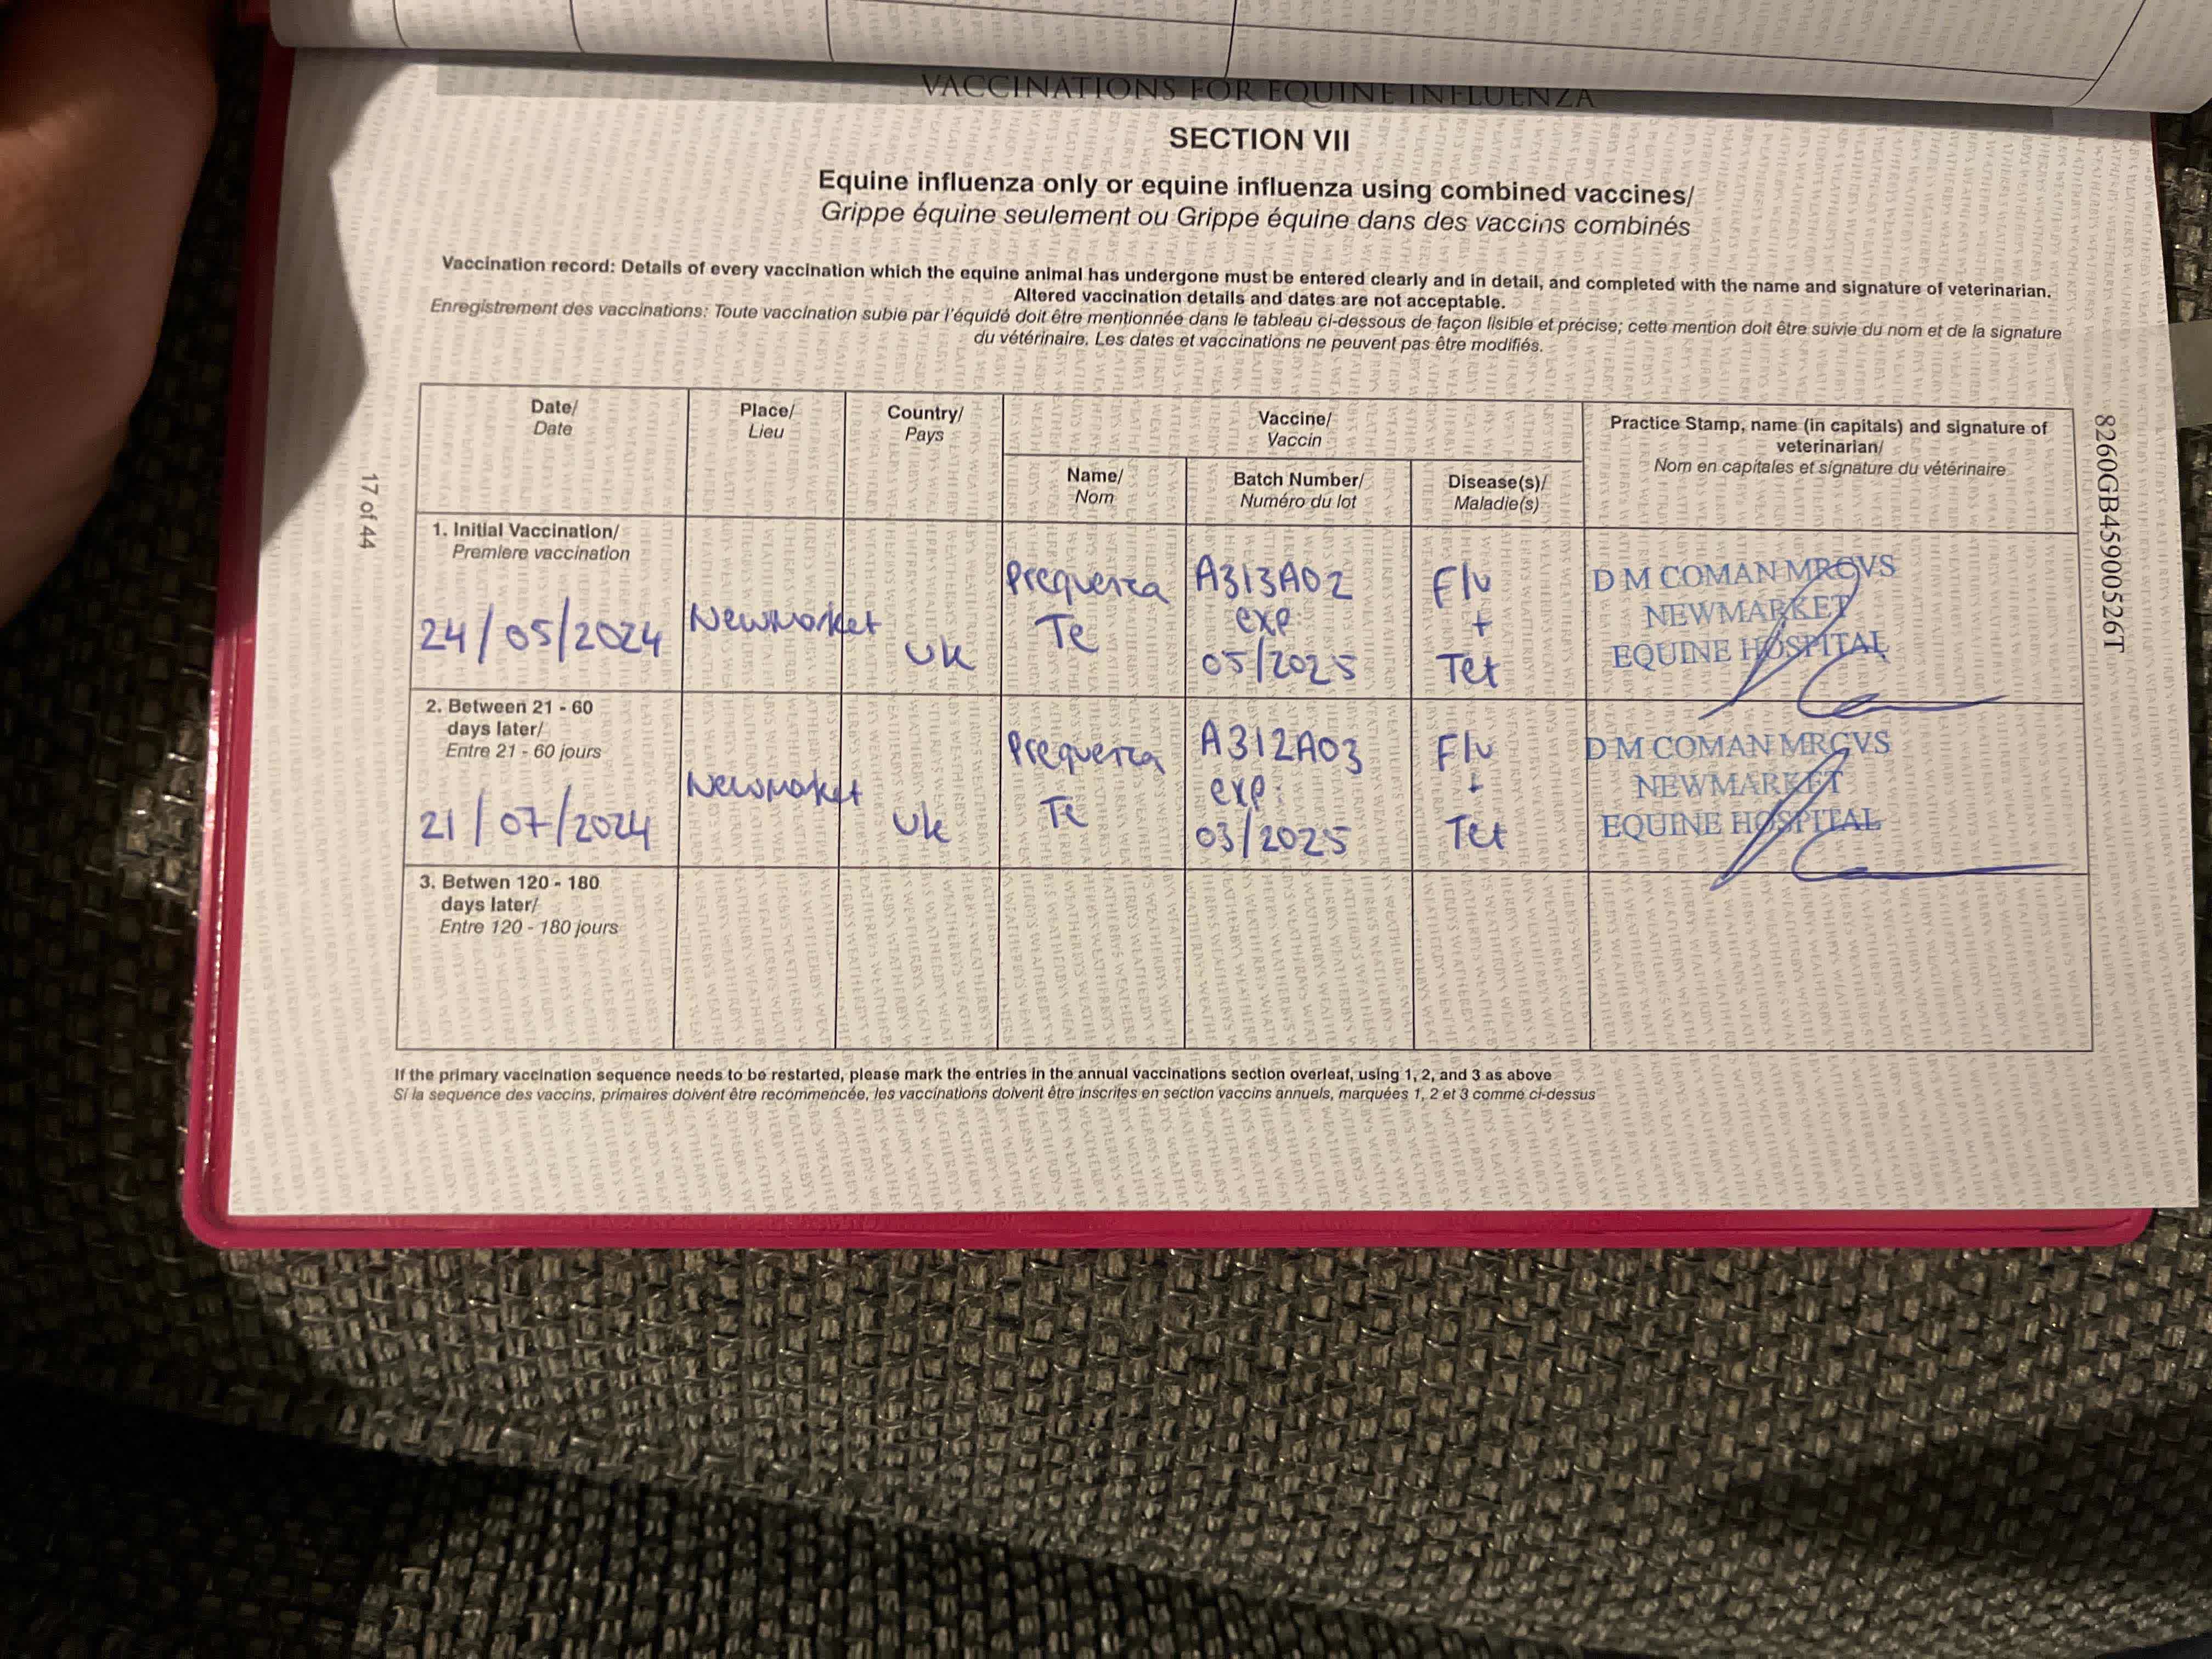 VACCINATIONS FOR EQUINE INFLUENZA
SECTION VII
Equine influenza only or equine influenza using combined vaccines/
Grippe équine seulement ou Grippe équine dans des vaccins combinés
Vaccination record: Details of every vaccination which the equine animal has undergone must be entered clearly and in detail, and completed with the name and signature of veterinarian.
Altered vaccination details and dates are not acceptable.
Enregistrement des vaccinations: Toute vaccination subie par l'équidé doit être mentionnée dans le tableau ci-dessous de façon lisible et précise; cette mention doit être suivie du nom et de la signature
du vétérinaire. Les dates et vaccinations ne peuvent pas être modifiés.
Date/
Date
Place/
Lieu
Country/
Pays
Vaccine/
Vaccin
Name/
Nom
Batch Number/
Numéro du lot
Disease(s)/
Maladie(s)
Practice Stamp, name (in capitals) and signature of
veterinarian/
Nom en capitales et signature du vétérinaire
1. Initial Vaccination/
Premiere vaccination
24/05/2024
Newmarket
Uk
Prequenza
Te
A313A02
exp
05/2025
Flu
+
Tet
D M COMAN MRCVS
NEWMARKET
EQUINE HOSPITAL
2. Between 21 - 60
days later/
Entre 21 - 60 jours
21/07/2024
Newmarket
Uk
Prequenza
Te
A312A03
exp
03/2025
Flu
+
Tet
D M COMAN MRCVS
NEWMARKET
EQUINE HOSPITAL
3. Betwen 120 - 180
days later/
Entre 120 - 180 jours
If the primary vaccination sequence needs to be restarted, please mark the entries in the annual vaccinations section overleaf, using 1, 2, and 3 as above
Si la sequence des vaccins, primaires doivent être recommencée, les vaccinations doivent être inscrites en section vaccins annuels, marquées 1, 2 et 3 comme ci-dessus
17 of 44
8260GB45900526T